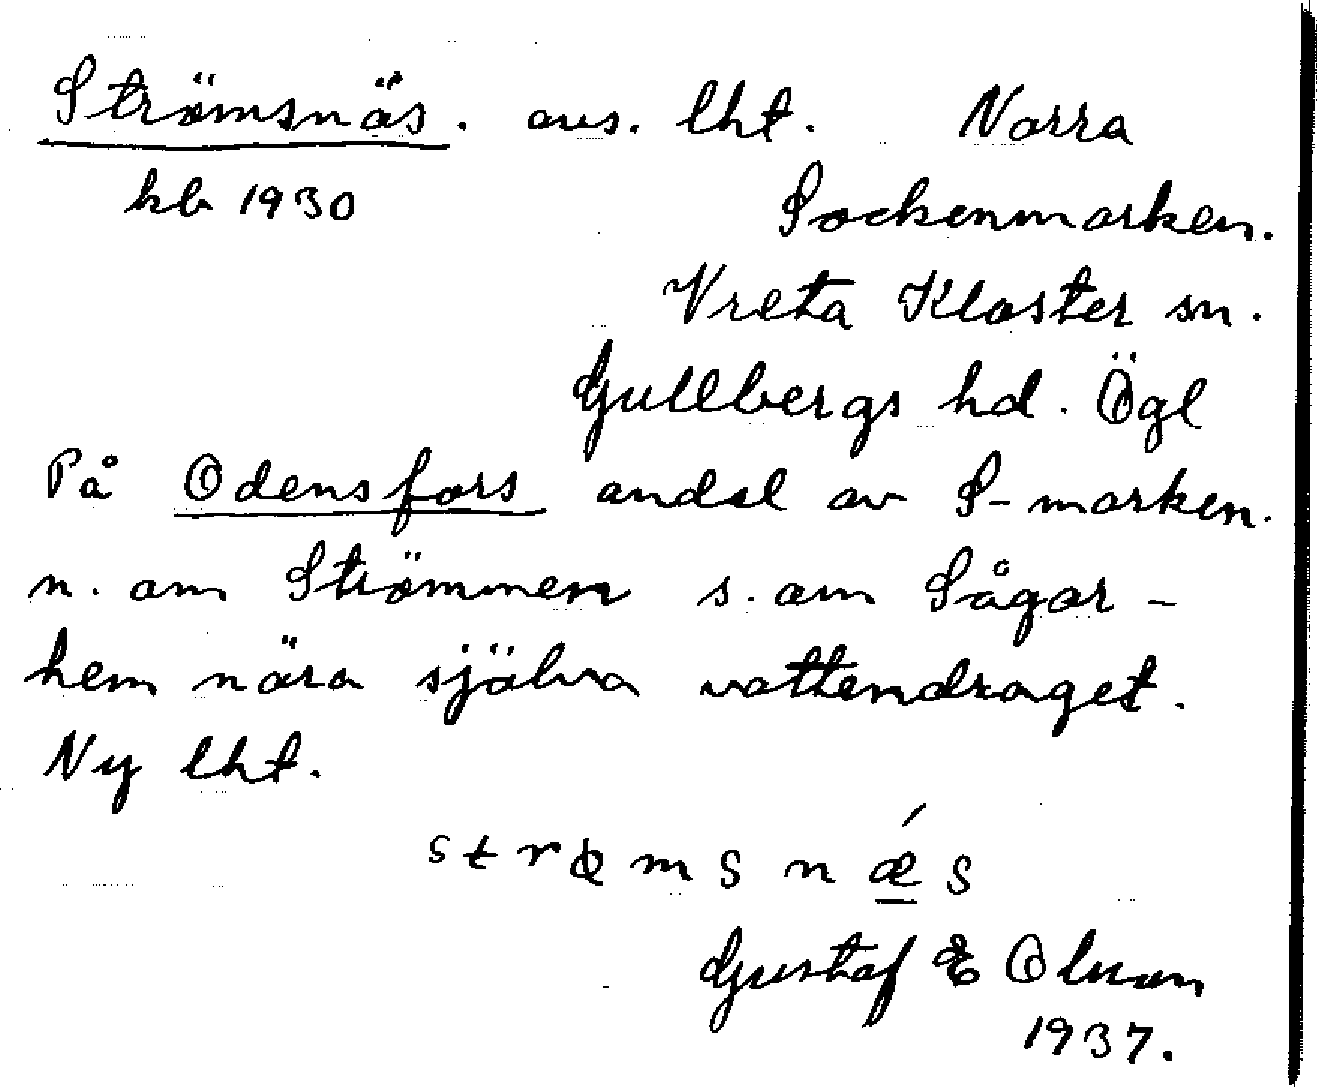 Strömsnäs. avs. lht. Norra
hb 1930 Sockenmarken.
Vreta Kloster sn.
Gullbergs hd. Ögl
På Odensfors andel av S-marken.
n. om Strömmen s. om Sågar-
hem nära själva vattendraget.
Ny lht.
strœmsnǽs
Gustaf E Olsson
1937.